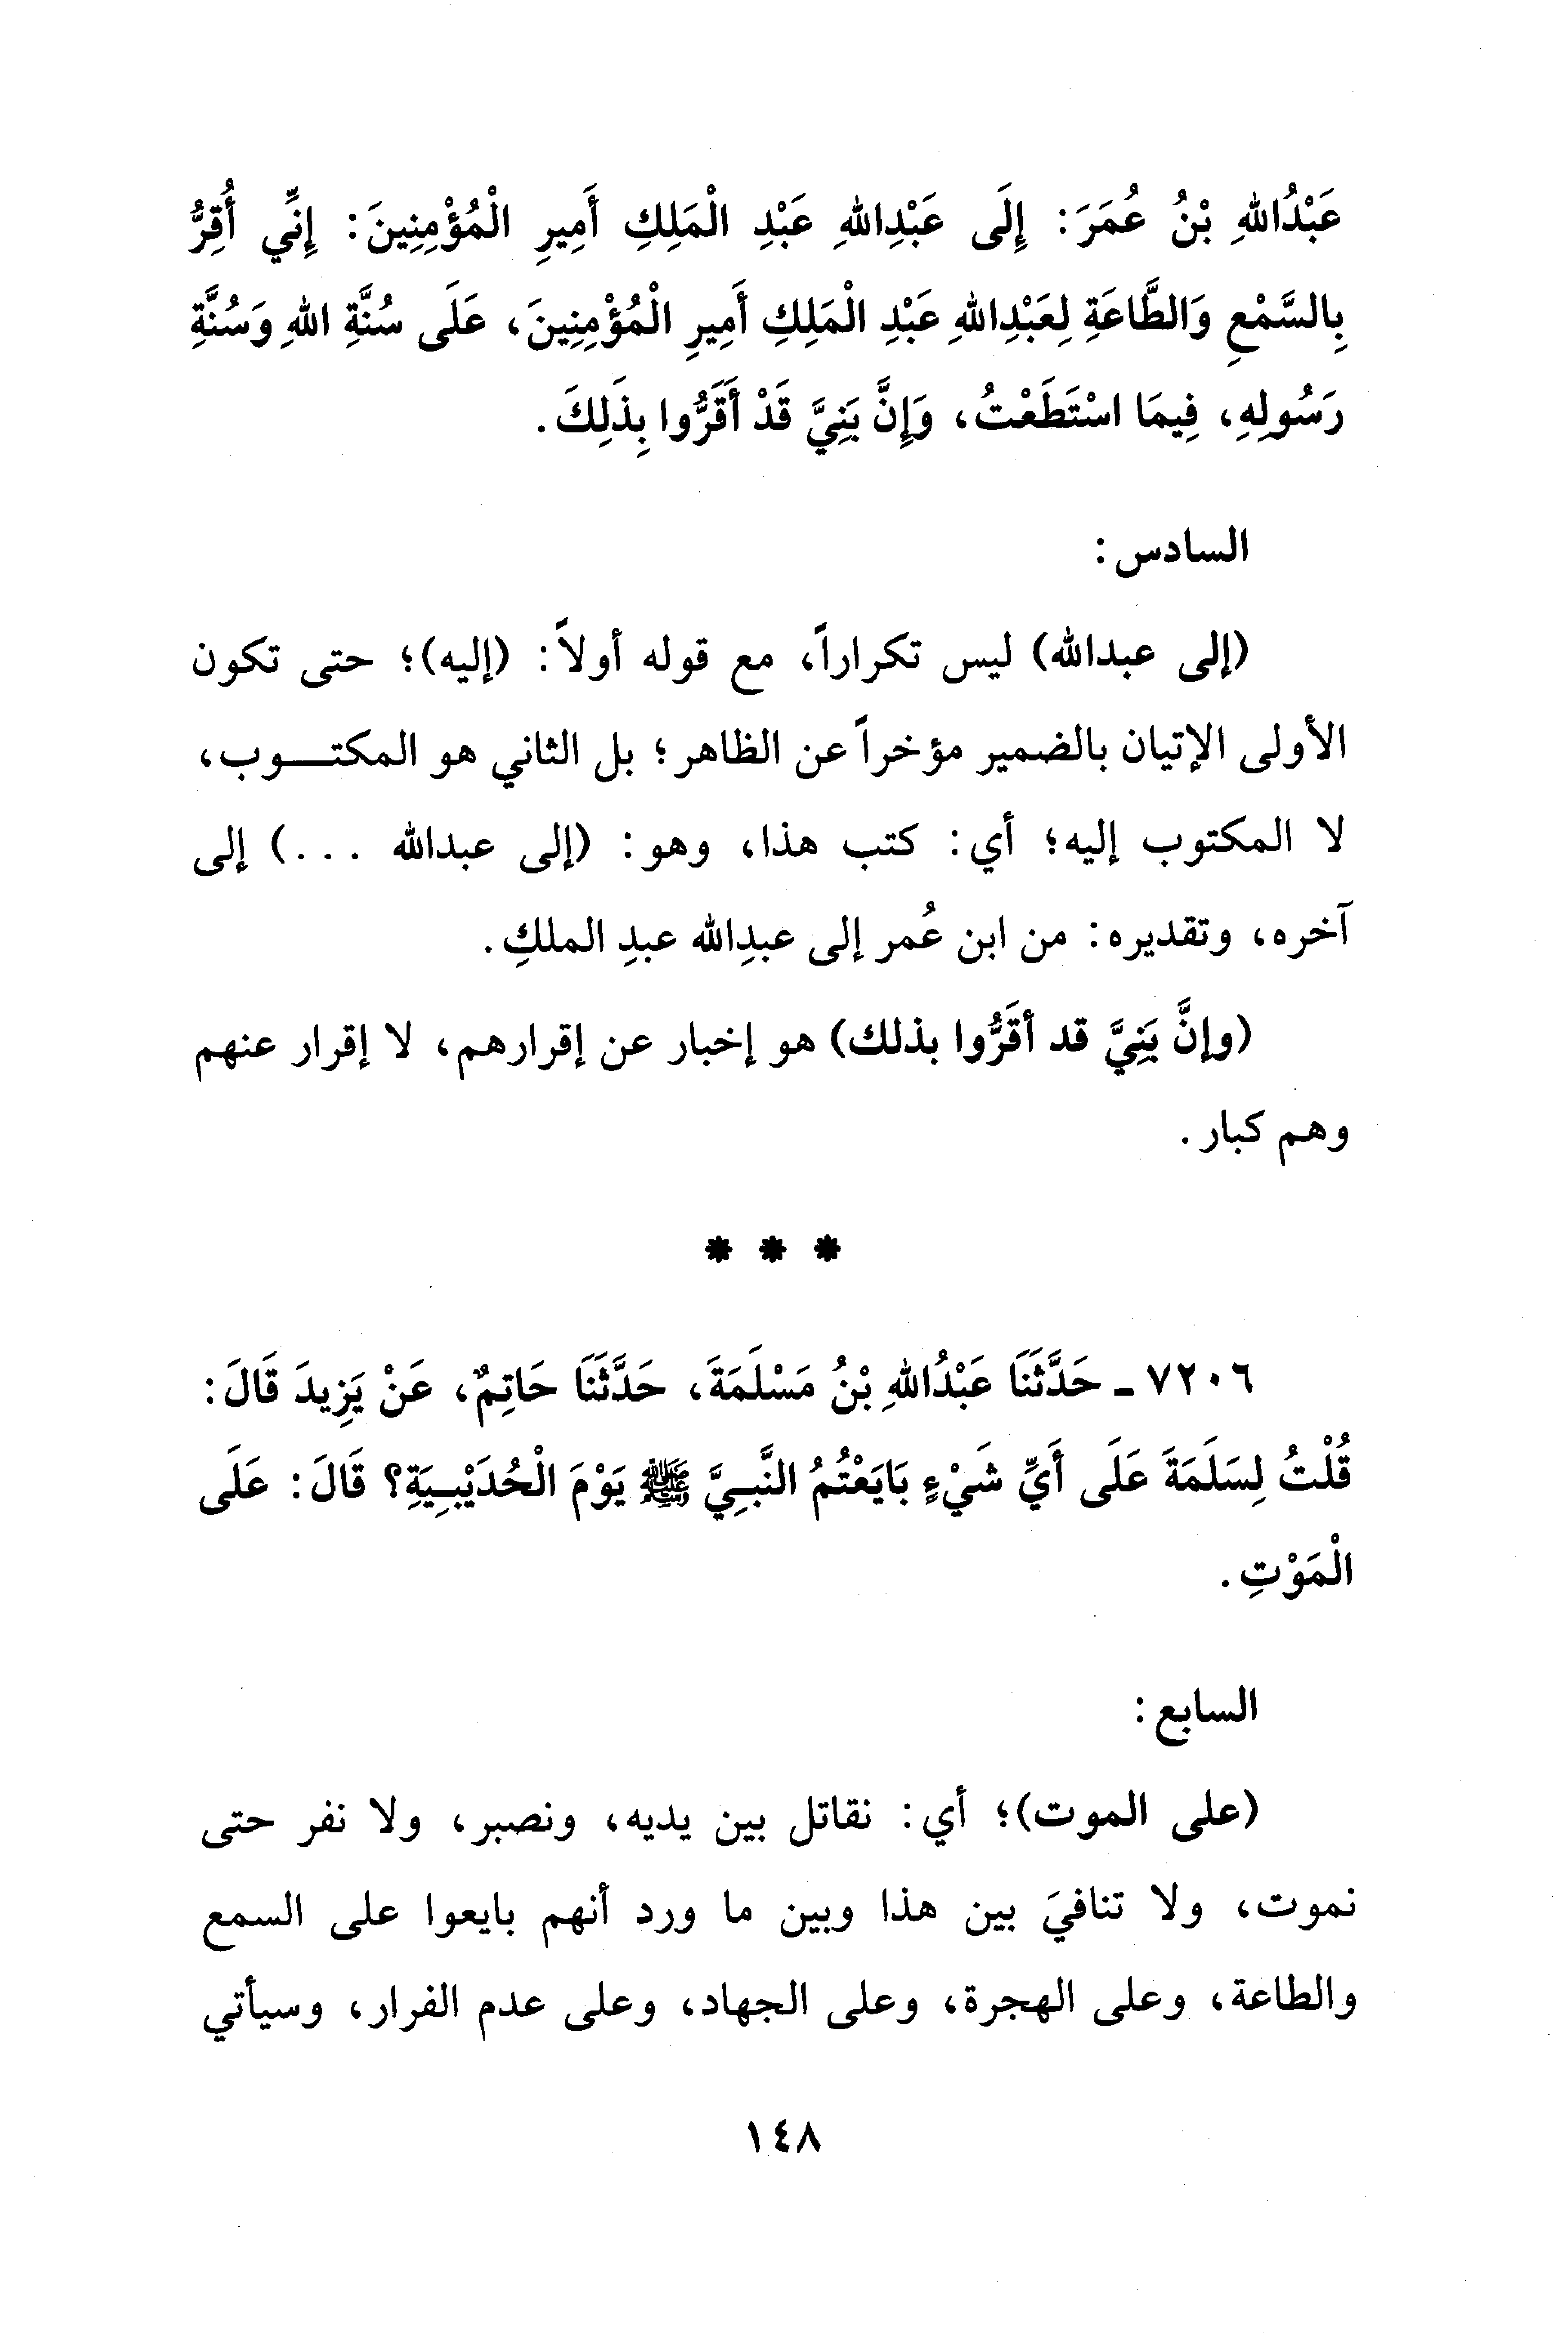 عَبْدُاللهِ بْنُ عُمَرَ: إِلَى عَبْدِاللهِ عَبْدِ الْمَلِكِ أَمِيرِ الْمُؤْمِنِينَ: إِنِّي أُقِرُّ
بِالسَّمْعِ وَالطَّاعَةِ لِعَبْدِاللهِ عَبْدِ الْمَلِكِ أَمِيرِ الْمُؤْمِنِينَ، عَلَى سُنَّةِ اللهِ وَسُنَّةِ
رَسُولِهِ، فِيمَا اسْتَطَعْتُ، وَإِنَّ بَنِيَّ قَدْ أَقَرُّوا بِذَلِكَ.
السادس:
(إلى عبدالله) ليس تكراراً، مع قوله أولاً: (إليه)؛ حتى تكون
الأولى الإتيان بالضمير مؤخراً عن الظاهر؛ بل الثاني هو المكتـــوب،
لا المكتوب إليه؛ أي: كتب هذا، وهو: (إلى عبدالله ...) إلى
آخره، وتقديره: من ابن عُمر إلى عبدِالله عبدِ الملكِ.
(وإنَّ بَنِيَّ قد أقَرُّوا بذلك) هو إخبار عن إقرارهم، لا إقرار عنهم
وهم كبار.
* * *
٧٢٠٦ ـ حَدَّثَنَا عَبْدُاللهِ بْنُ مَسْلَمَةَ، حَدَّثَنَا حَاتِمٌ، عَنْ يَزِيدَ قَالَ:
قُلْتُ لِسَلَمَةَ عَلَى أَيِّ شَيْءٍ بَايَعْتُمُ النَّبِيَّ ﷺ يَوْمَ الْحُدَيْبِيَةِ؟ قَالَ: عَلَى
الْمَوْتِ.
السابع:
(على الموت)؛ أي: نقاتل بين يديه، ونصبر، ولا نفر حتى
نموت، ولا تنافيَ بين هذا وبين ما ورد أنهم بايعوا على السمع
والطاعة، وعلى الهجرة، وعلى الجهاد، وعلى عدم الفرار، وسيأتي
١٤٨